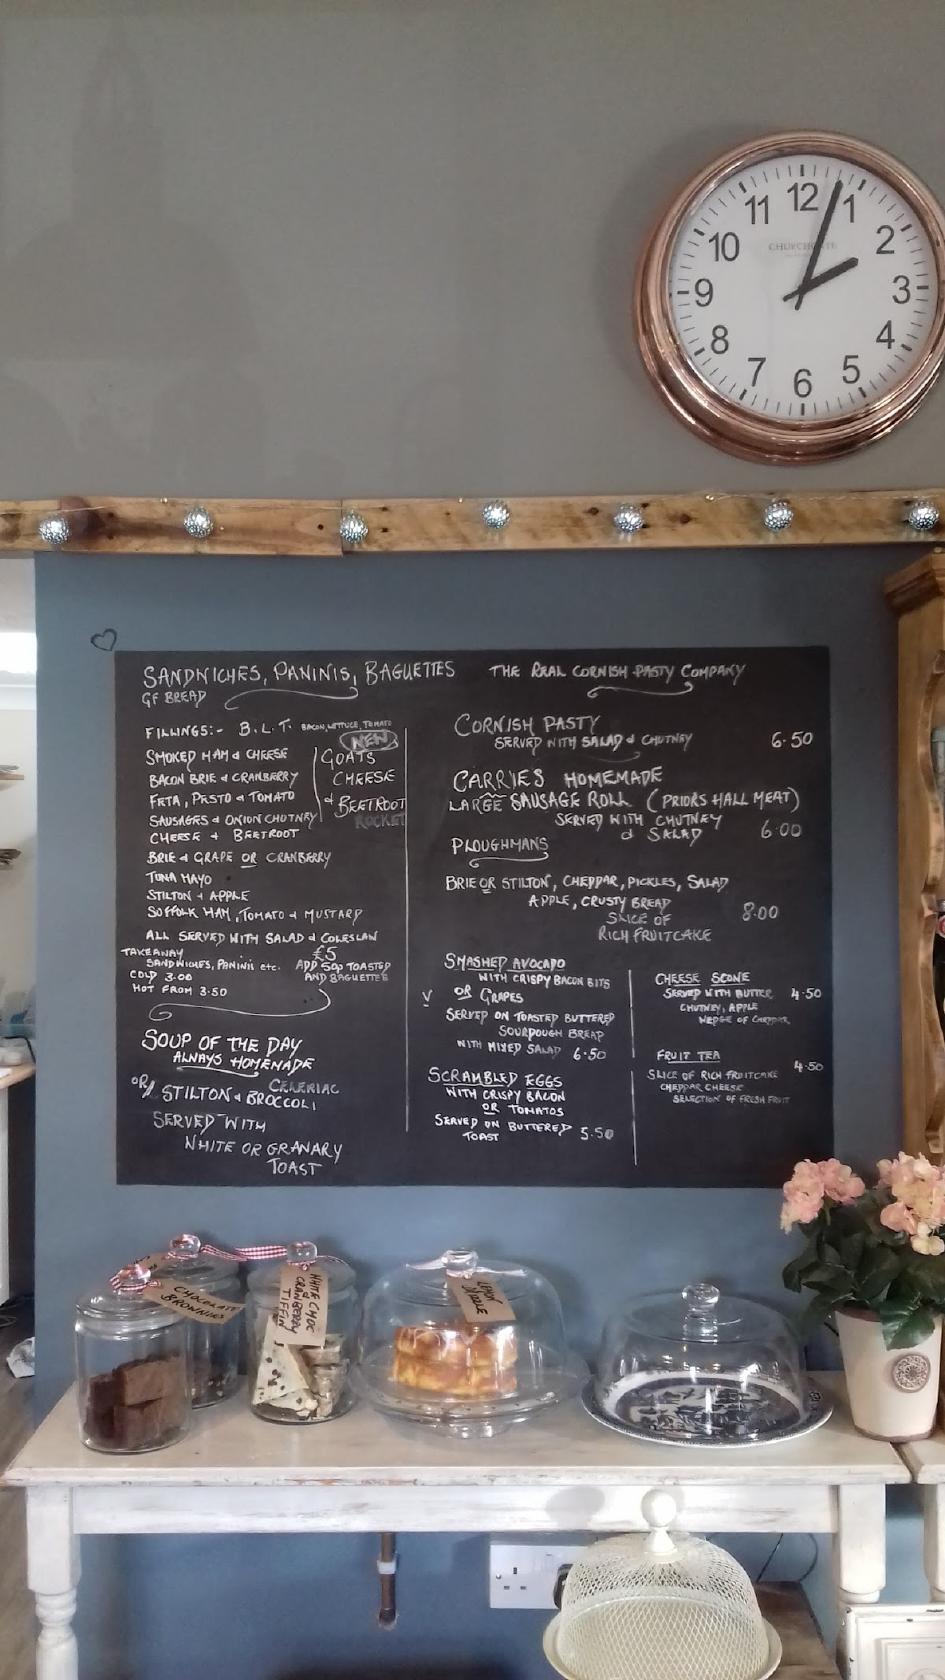 12
11
1
CHURCHGATE
10
2
9
3
8
4
7
5
6
SANDWICHES, PANINIS, BAGUETTES
GF BREAD
FILLINGS:- B.L.T. BACON, LETTUCE, TOMATO
SMOKED HAM & CHEESE
BACON BRIE & CRANBERRY
FETA, PESTO & TOMATO
SAUSAGES & ONION CHUTNEY
CHEESE & BEETROOT
NEW
GOATS
CHEESE
& BEETROOT
ROCKET
BRIE & GRAPE OR CRANBERRY
TUNA MAYO
STILTON & APPLE
SUFFOLK HAM, TOMATO & MUSTARD
ALL SERVED WITH SALAD & COLESLAW
£5
TAKEAWAY
SANDWICHES, PANINIS etc.
COLD 3.00
HOT FROM 3.50
ADD 50p TOASTED
AND BAGUETTES
SOUP OF THE DAY
ALWAYS HOMEMADE
CELERIAC
OR/ STILTON & BROCCOLI
SERVED WITH
WHITE OR GRANARY
TOAST
THE REAL CORNISH PASTY COMPANY
CORNISH PASTY
SERVED WITH SALAD & CHUTNEY 6.50
CARRIES HOMEMADE
LARGE SAUSAGE ROLL (PRIORS HALL MEAT)
SERVED WITH CHUTNEY
& SALAD 6.00
PLOUGHMANS
BRIE OR STILTON, CHEDDAR, PICKLES, SALAD
APPLE, CRUSTY BREAD
SLICE OF 8.00
RICH FRUITCAKE
SMASHED AVOCADO
WITH CRISPY BACON BITS
V OR GRAPES
SERVED ON TOASTED BUTTERED
SOURDOUGH BREAD
WITH MIXED SALAD 6.50
SCRAMBLED EGGS
WITH CRISPY BACON
OR TOMATOS
SERVED ON BUTTERED
TOAST 5.50
CHEESE SCONE
SERVED WITH BUTTER 4.50
CHUTNEY, APPLE
WEDGE OF CHEDDAR
FRUIT TEA
SLICE OF RICH FRUITCAKE 4.50
CHEDDAR CHEESE
SELECTION OF FRESH FRUIT
CHOCOLATE
BROWNIES
WHITE CHOC
&
CRANBERRY
TIFFIN
LEMON
DRIZZLE